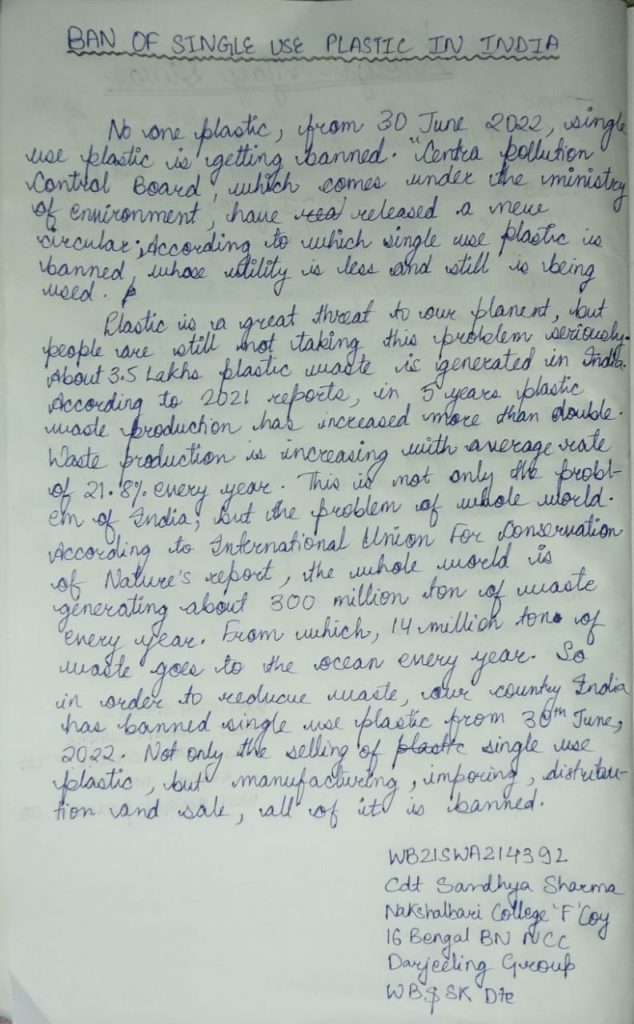 BAN OF SINGLE USE PLASTIC IN INDIA
No one plastic, from 30 June 2022, single
use plastic is getting banned. "Centra pollution
Control Board, which comes under the ministry
of environment, have released a new
circular; According to which single use plastic is
banned, whose utility is less and still is being
used.
Plastic is a great threat to our planent, but
people are still not taking this problem seriously.
About 3.5 Lakhs plastic waste is generated in India.
According to 2021 reports, in 5 years plastic
waste production has increased more than double.
Waste production is increasing with average rate
of 21.8% every year. This is not only the probl-
em of India, but the problem of whole world.
According to International Union For Conservation
of Nature's report, the whole world is
generating about 300 million ton of waste
every year. From which, 14 million tons of
waste goes to the ocean every year. So
in order to reducue waste, our country India
has banned single use plastic from 30th June,
2022. Not only the selling of plastic single use
plastic, but manufacturing, imporing, distribu-
tion and sale, all of it is banned.
WB21SWA214392
Cdt Sandhya Sharma
Nakshalbari College 'F' Coy
16 Bengal BN NCC
Darjeeling Group
WB & SK Dte